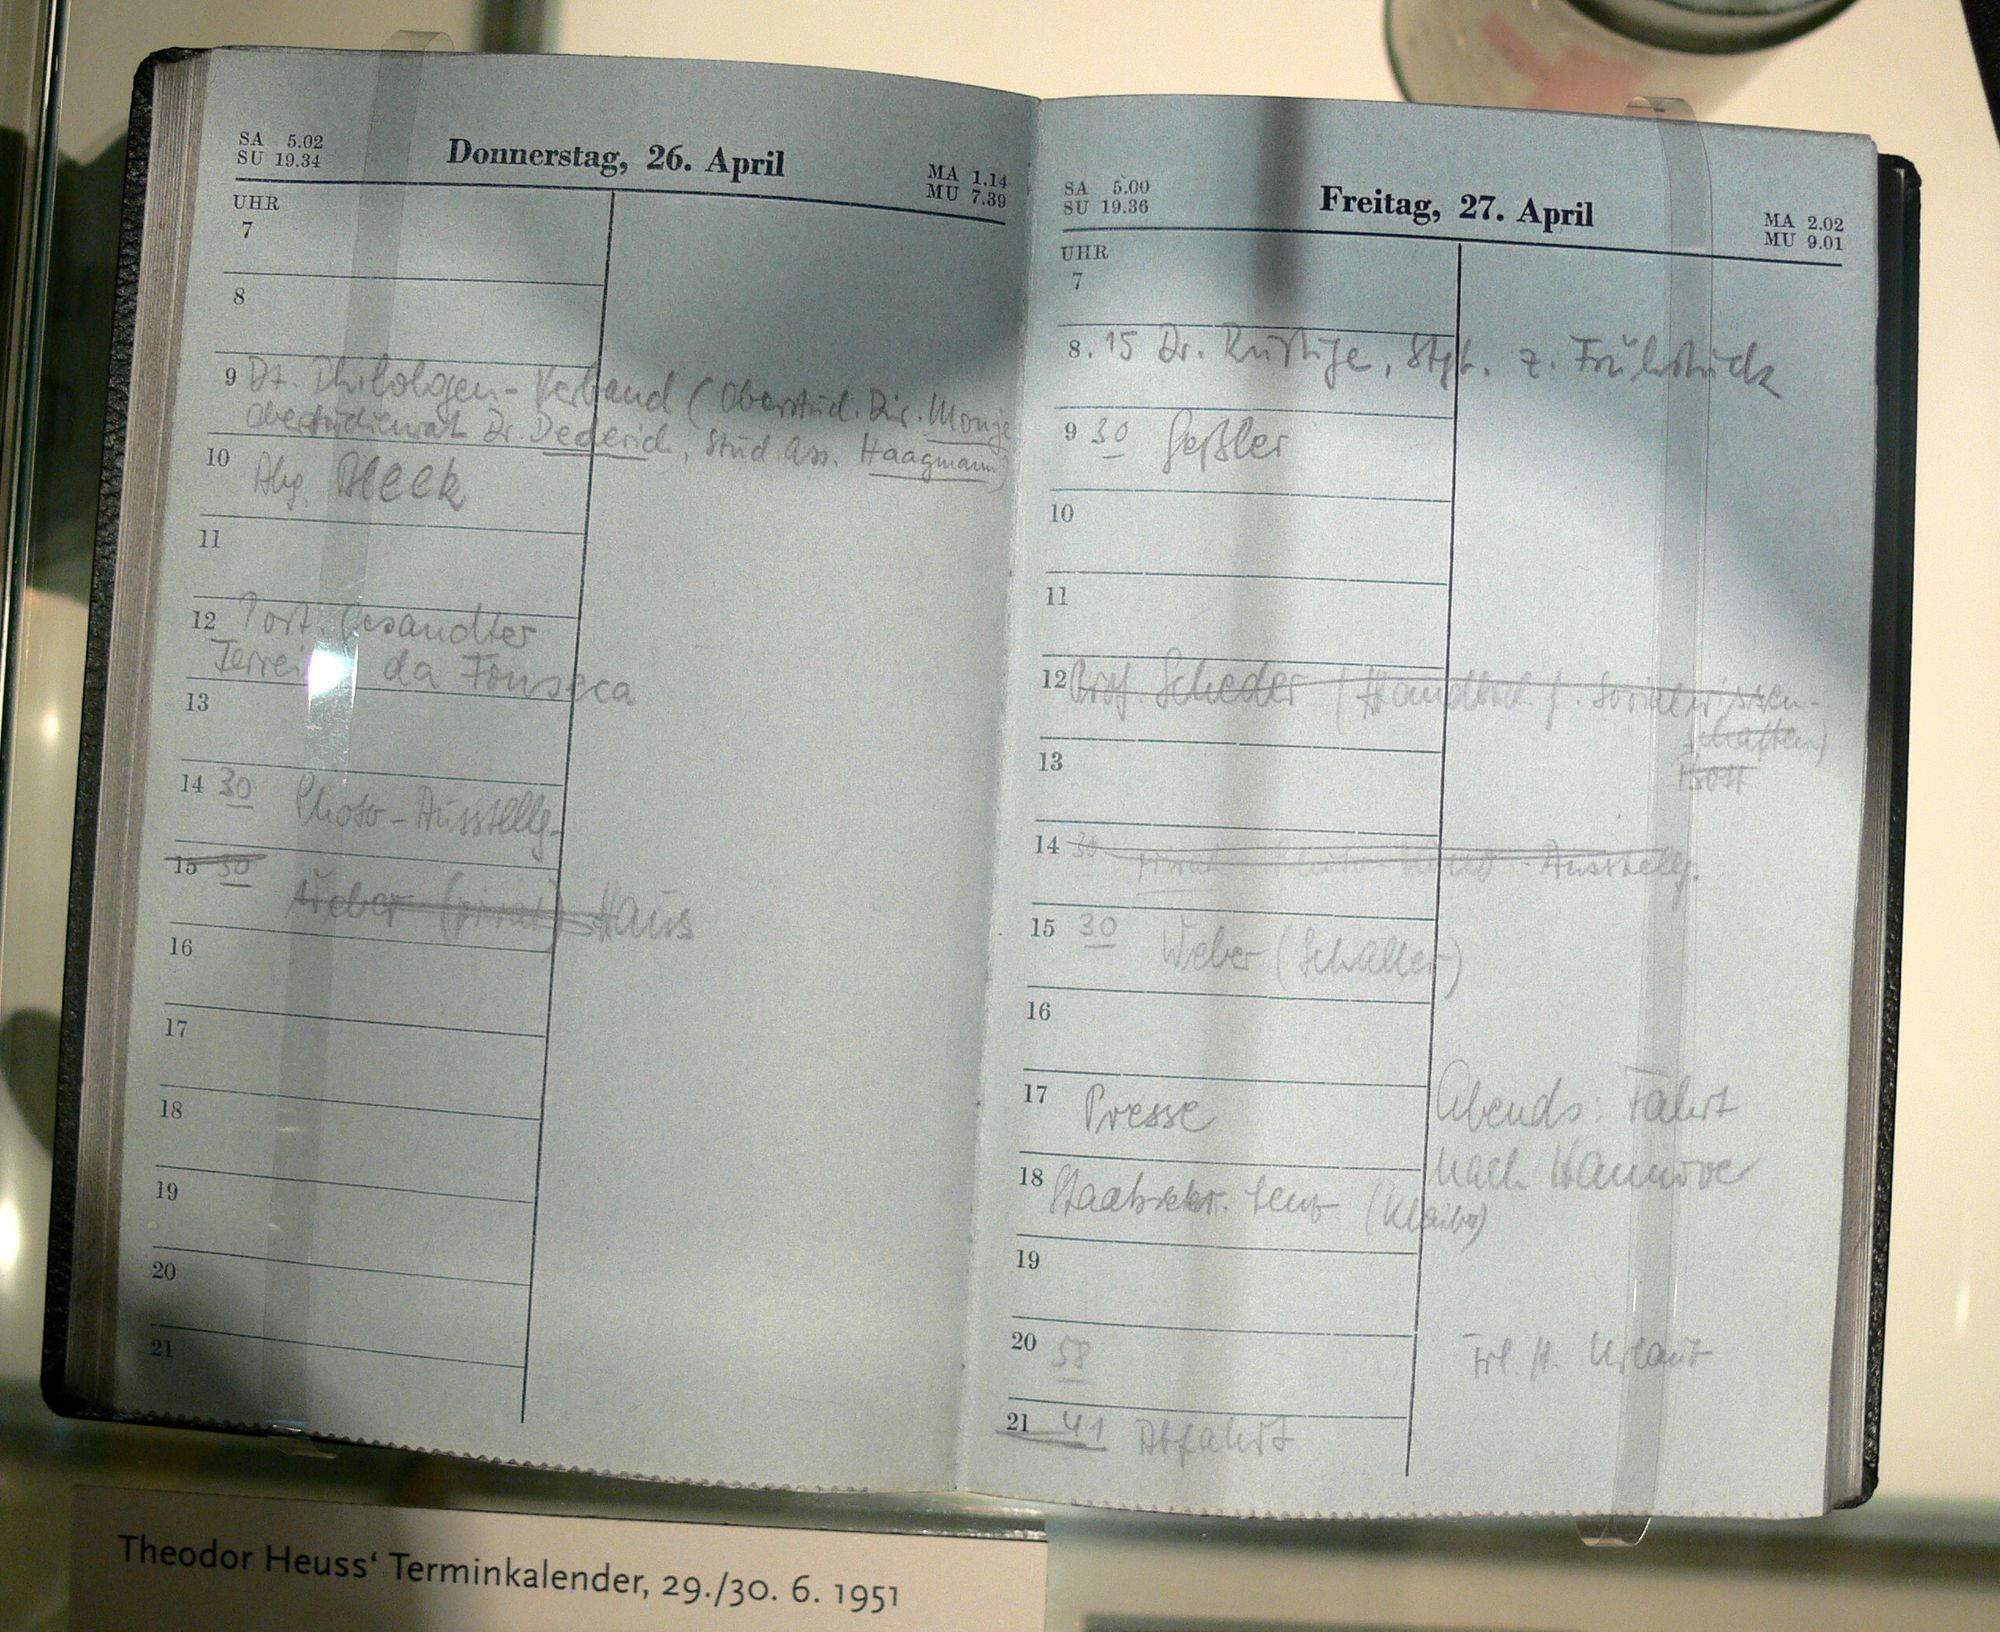 SA 5.02
SU 19.34
Donnerstag, 26. April
MA 1.14
MU 7.39
UHR
7
8
9 Dt. Philologen-Verband (Oberstud. Dir. Monje
Oberstudienrat Dr. Dederich, Stud. Ass. Haagmann)
10 Abg. Bleek
11
12 Port. Gesandter
da Fonseca
13
14 30 Photo-Ausstellg.
15 30 Weber (privat) Haus
16
17
18
19
20
21
SA 5.00
SU 19.36
Freitag, 27. April
MA 2.02
MU 9.01
UHR
7
8.15 Dr. Rustige, Stgt. z. Frühstück
9 30 Geßler
10
11
12 Prof. Scheder (Handbuch f. Sozialwissen-
schaften)
13
14 30 Ausstellg.
15 30 Weber (Schaller)
16
17 Presse Abends: Fahrt
nach Hannover
18 Staatssekr. Lenz (Klaiber)
19
20 58 Frl. H. Urlaub
21 41 Abfahrt
Theodor Heuss‘ Terminkalender, 29./30. 6. 1951